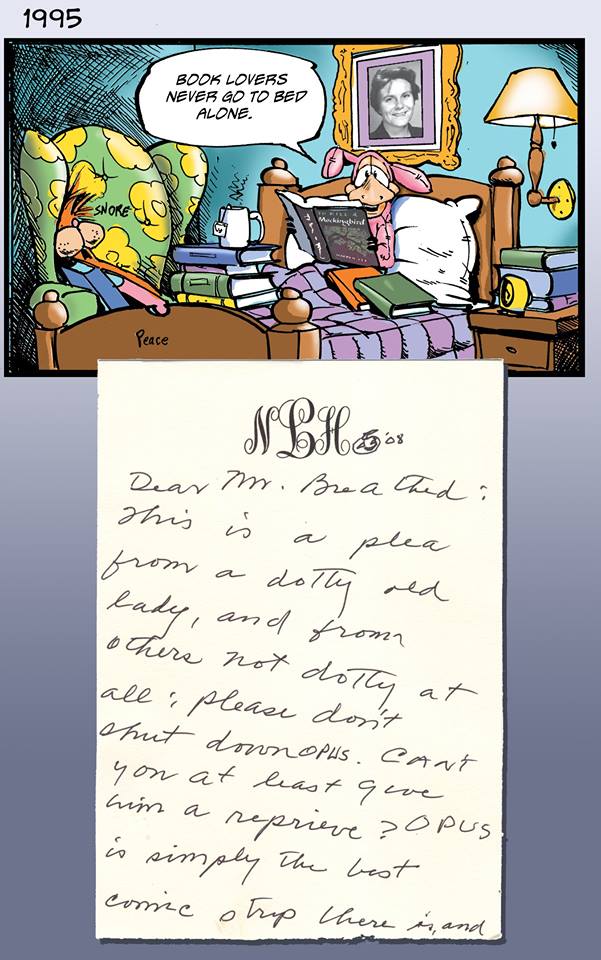 1995
BOOK LOVERS
NEVER GO TO BED
ALONE.
SNORE
TO KILL A
Mockingbird
HARPER LEE
Peace
NLH
'08
Dear Mr. Breathed:
This is a plea
from a dotty old
lady, and from
others not dotty at
all: please don't
shut down OPUS. CAN'T
you at least give
him a reprieve? OPUS
is simply the best
comic strip there is, and